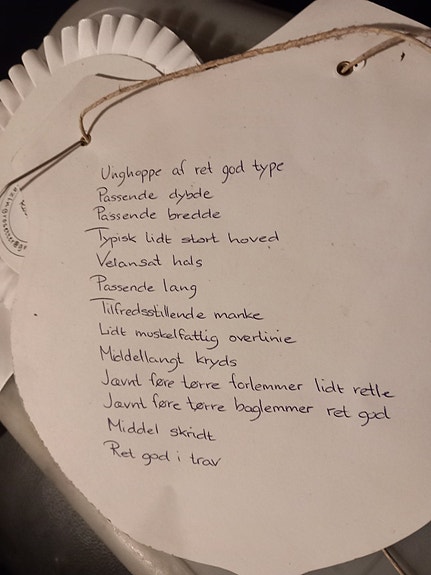 Unghoppe af ret god type
Passende dybde
Passende bredde
Typisk lidt stort hoved
Velansat hals
Passende lang
Tilfredsstillende manke
Lidt muskelfattig overlinie
Middellangt kryds
Jævnt føre tørre forlemmer lidt retle
Jævnt føre tørre baglemmer ret god
Middel skridt
Ret god i trav